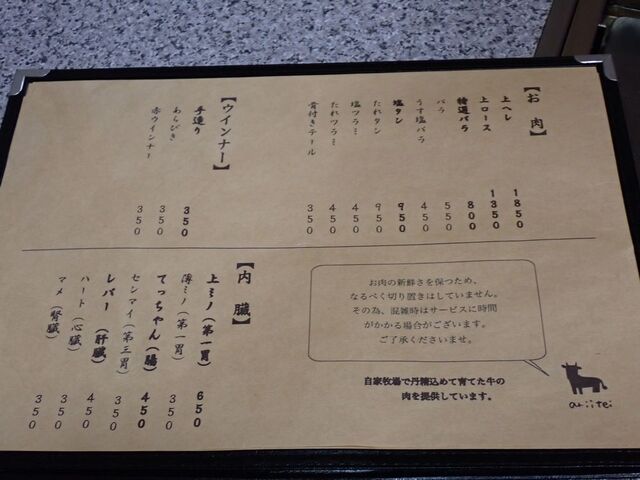 【お肉】
上ヘレ 1850
上ロース 1350
特選バラ 800
バラ 550
うす塩バラ 450
塩タン 950
たれタン 950
塩ツラミ 450
たれツラミ 450
骨付きテール 350
【ウインナー】
手造り 350
あらびき 350
赤ウインナー 350
【内臓】
上ミノ(第一胃) 650
薄ミノ(第一胃) 350
てっちゃん(腸) 450
センマイ(第三胃) 350
レバー(肝臓) 450
ハート(心臓) 350
マメ(腎臓) 350
お肉の新鮮さを保つため、
なるべく切り置きはしていません。
その為、混雑時はサービスに時間
がかかる場合がございます。
ご了承くださいませ。
自家牧場で丹精込めて育てた牛の
肉を提供しています。
ariitei